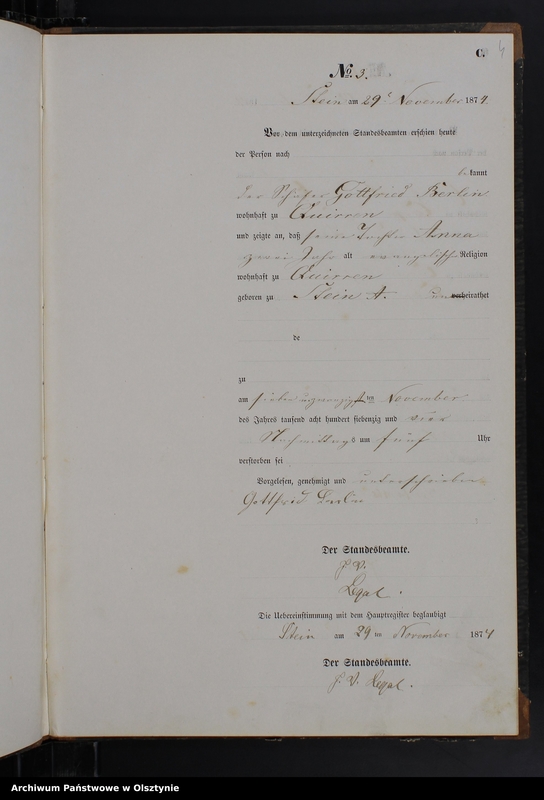 C.
4
No. 3.
Stein am 29t November 1874.
Vor dem unterzeichneten Standesbeamten erschien heute
der Person nach
be kannt
der Schäfer Gottfried Berlin
wohnhaft zu Quirren
und zeigte an, daß seine Tochter Anna
zwei Jahr alt evangelisch Religion
wohnhaft zu Quirren
geboren zu Stein A. unverheirathet
de
zu
am sieben u zwanzigsten November
des Jahres tausend acht hundert siebenzig und vier
Nachmittags um fünf Uhr
verstorben sei
Vorgelesen, genehmigt und unterschrieben
Gottfried Berlin
Der Standesbeamte.
J. V.
Legal.
Die Uebereinstimmung mit dem Hauptregister beglaubigt
Stein am 29 ten November 1874
Der Standesbeamte.
J. V. Legal.
Archiwum Państwowe w Olsztynie